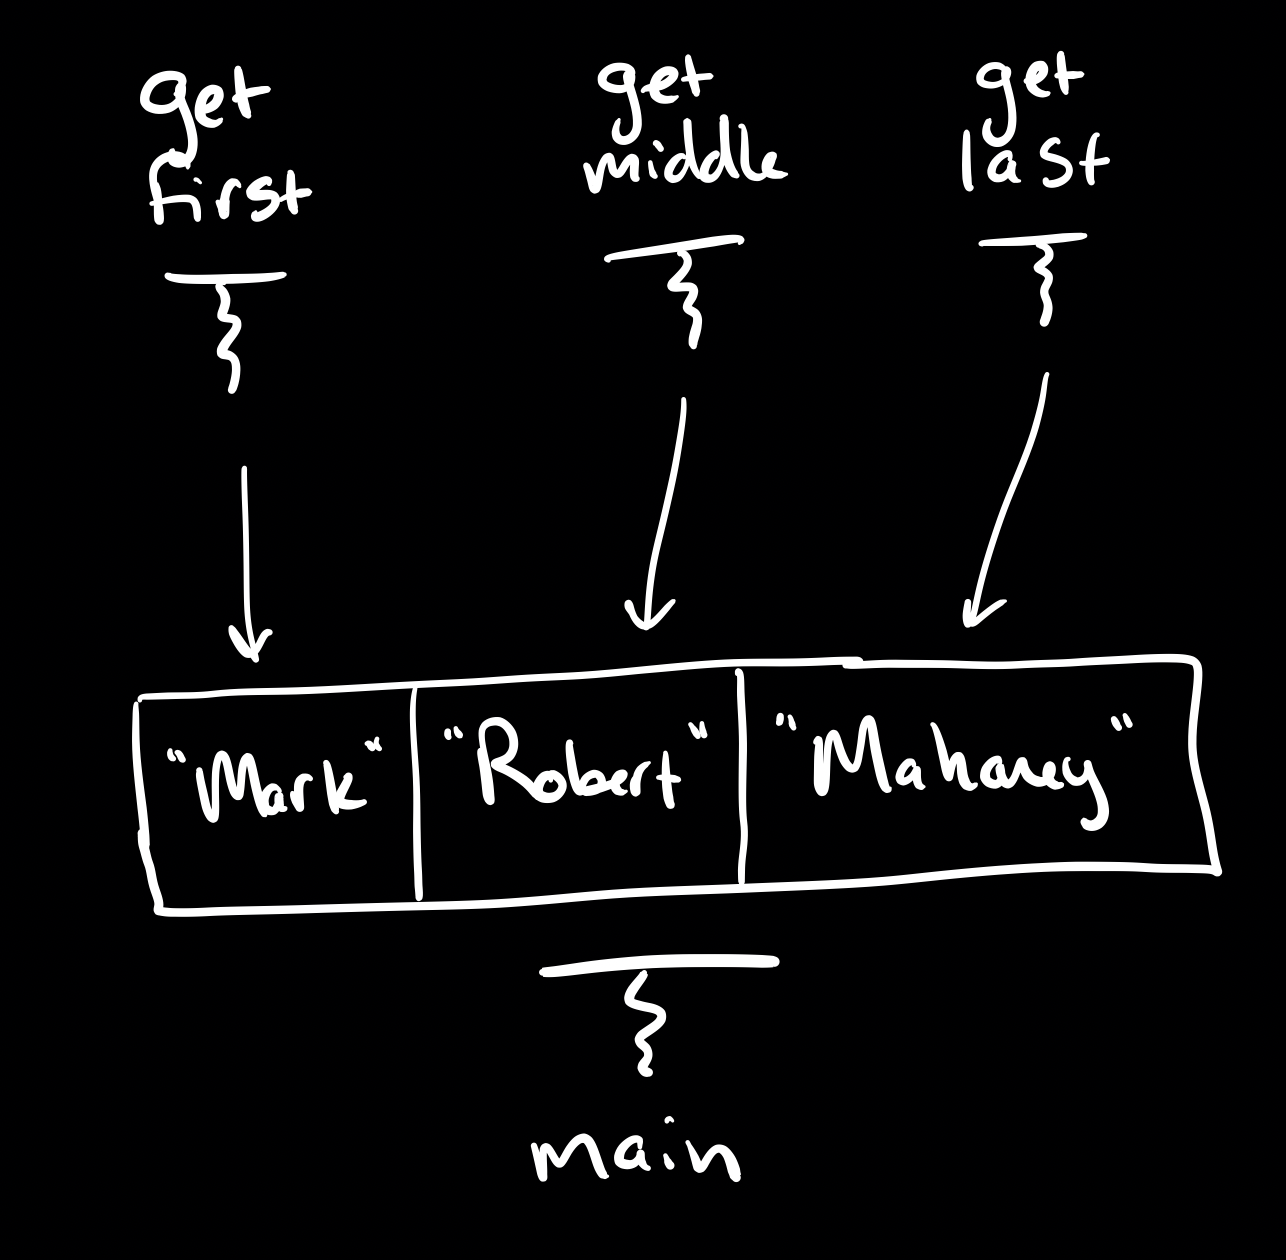 get
first
get
middle
get
last
"Mark"
"Robert"
"Mahoney"
main